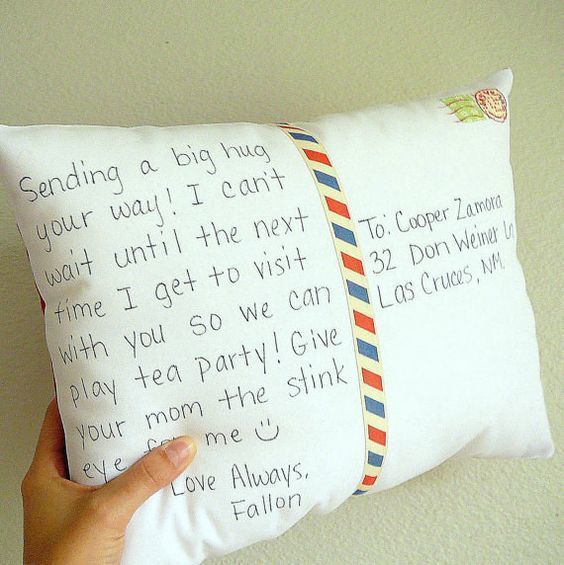 Sending a big hug
your way! I can't
wait until the next
time I get to visit
with you so we can
play tea party! Give
your mom the stink
eye me ☺
Love Always,
Fallon
To: Cooper Zamora
32 Don Weiner Ln
Las Cruces, NM.